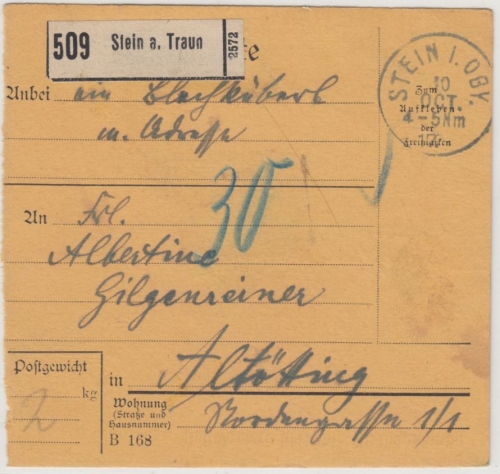 509 Stein a. Traun 2572
te
Anbei ein Blechküberl
m. Adresse
STEIN I. OBY.
10
OCT.
4-5 Nm
17
Zum
Aufkleben
der
Freimarken
30
An Frl.
Albertine
Gilgenreiner
Postgewicht
2 kg
in Altötting
Wohnung
(Straße und
Hausnummer)
B 168
1/1